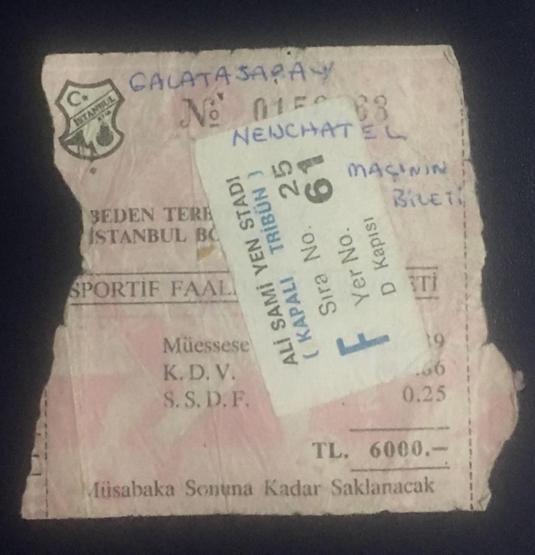 GALATASARAY
İSTANBUL
No
NEUCHATEL
MAÇININ
BİLETİ
BEDEN TER
İSTANBUL BÖ
SPORTİF FAAL
ETİ
Müessese
K.D.V.
S.S.D.F. 0.25
TL. 6000.—
Müsabaka Sonuna Kadar Saklanacak
ALİ SAMİ YEN STADI
( KAPALI TRİBÜN )
Sıra No. 25
Yer No. 61
D Kapısı
F